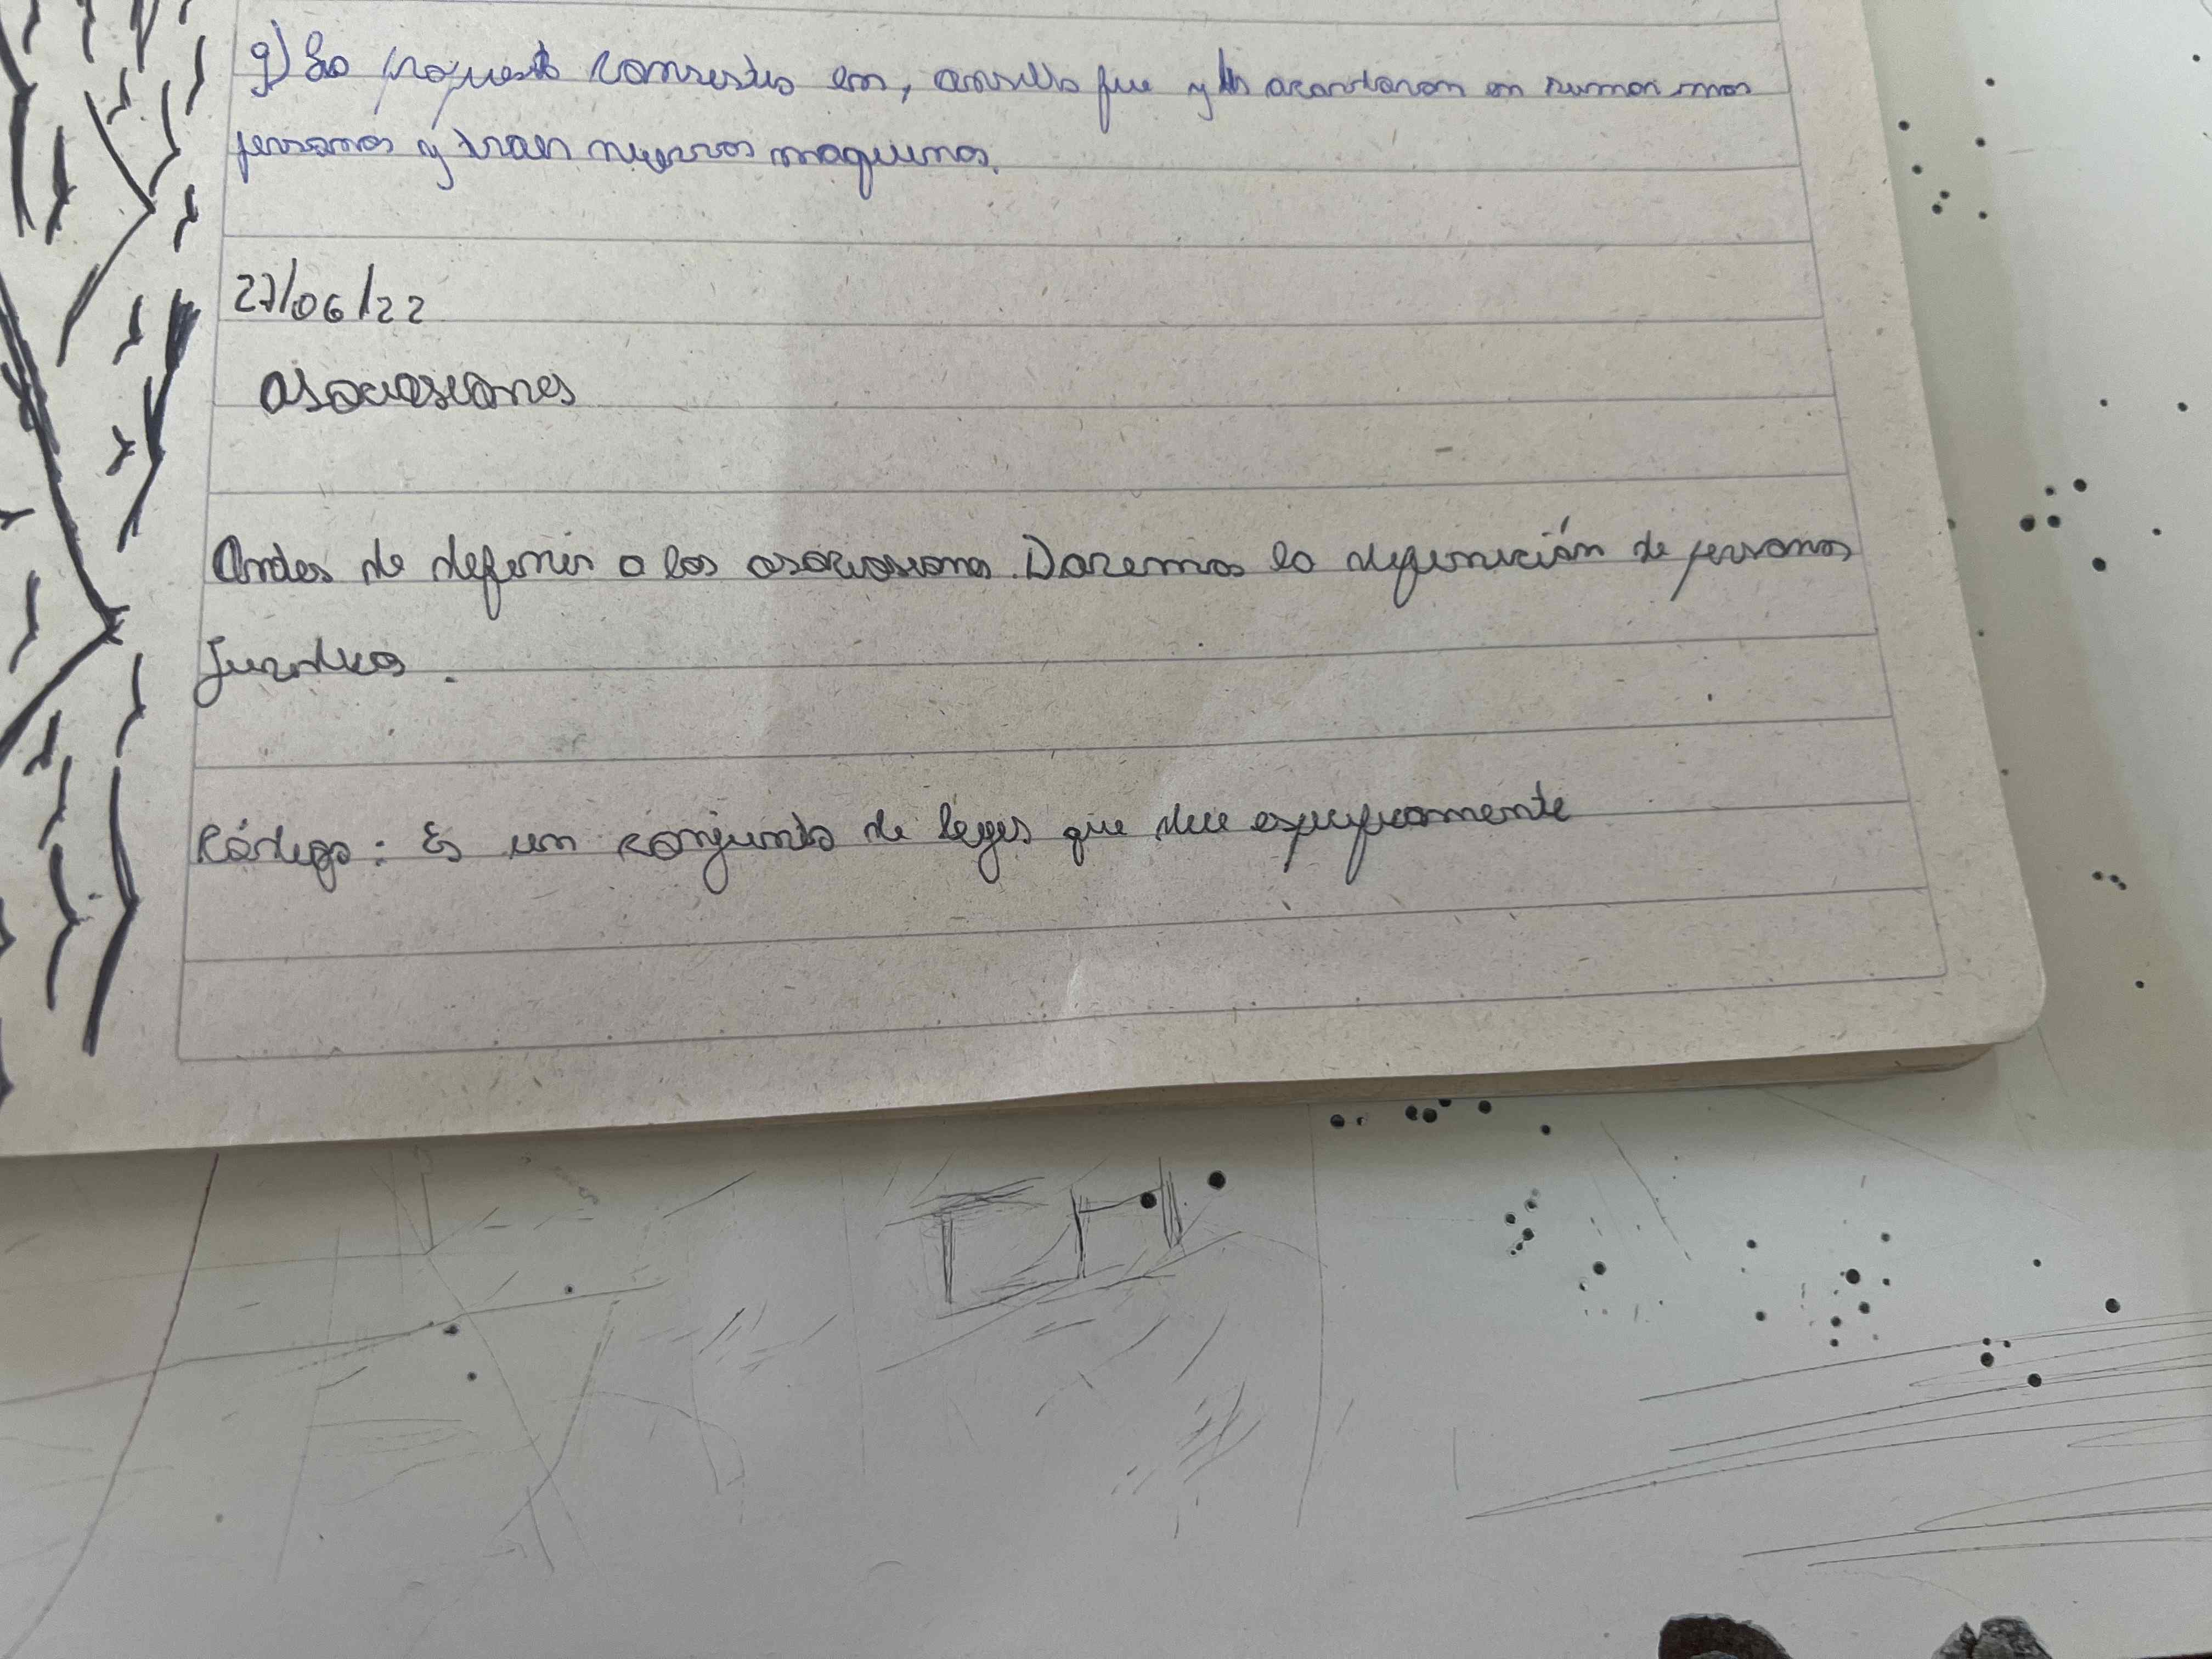 9) La propuesta consistia en, fue y acordaron en sumar mas
personas y traer nuevas maquinas.
27/06/22
asociasiones
Antes de definir a las asociasiones. Daremos la definición de personas
Juridicas.
Código: Es un conjunto de leyes que dice especificamente